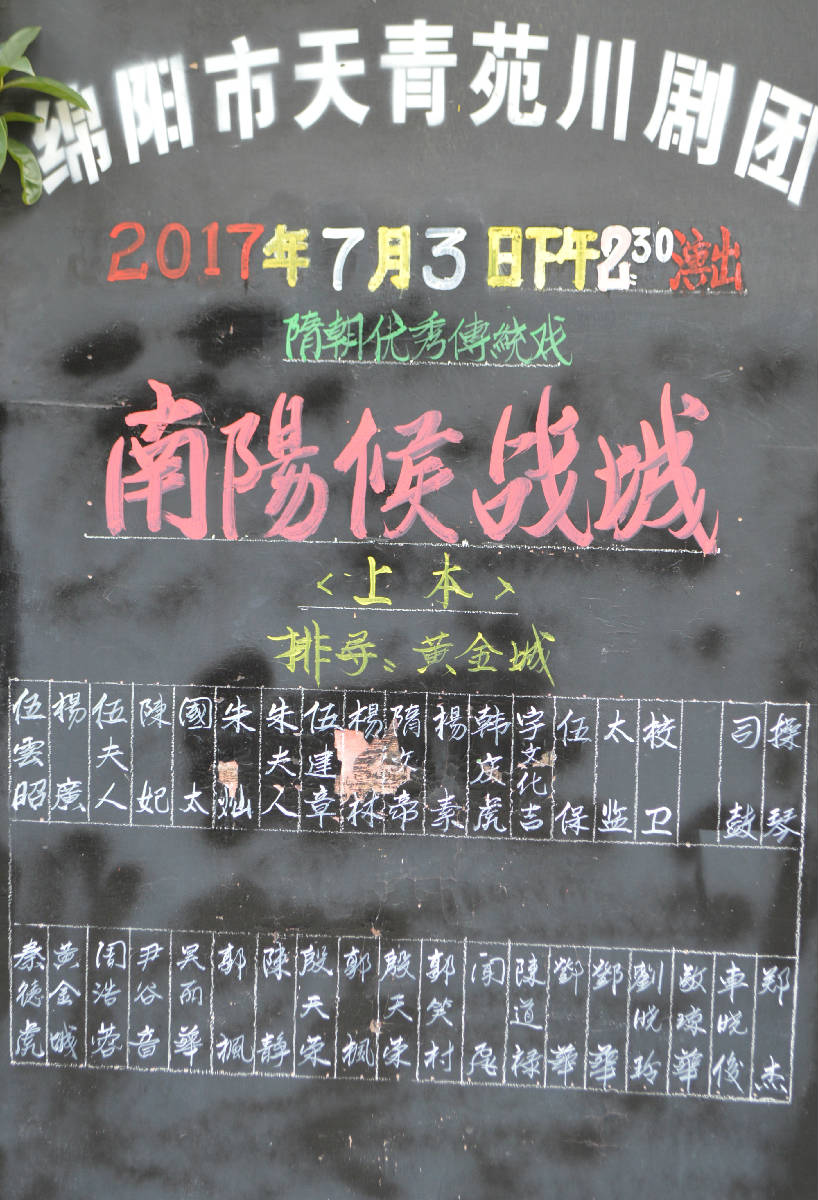 绵阳市天青苑川剧团
2017年7月3日下午2:30演出
隋朝优秀傳統戏
南陽候战城
<上本>
排导：黄金城
伍雲昭
楊廣
伍夫人
陳妃
國太
朱灿
朱夫人
伍建章
楊林
隋文帝
楊素
韩虎
宇文化吉
伍保
太监
校卫
司鼓
操琴
秦德虎
黄金城
周浩蓉
尹谷音
吴丽華
郭楓
陳静
殷天荣
郭楓
殷天荣
郭笑村
闻
陳道禄
鄧華
鄧華
劉晓玲
敬瓊華
車晓俊
郑杰